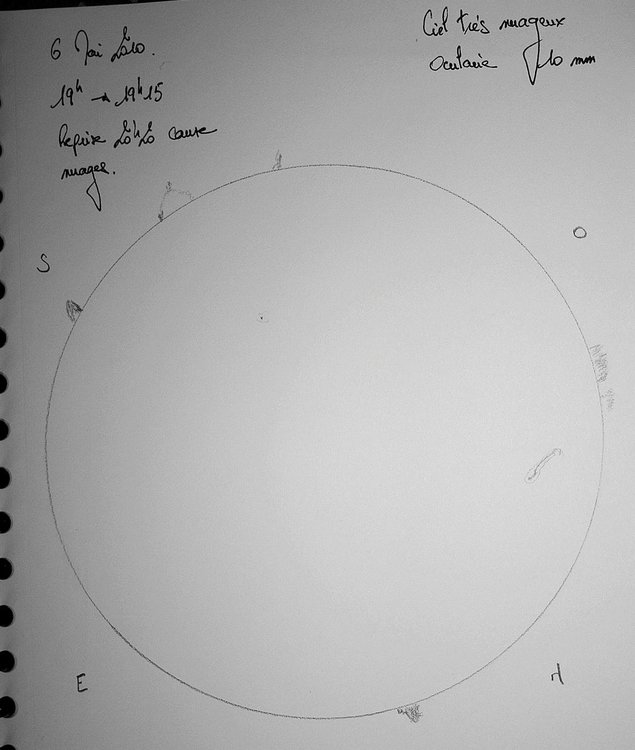 6 Mai 2010.
19h → 19h15
Reprise 20h20 cause
nuages.
Ciel très nuageux
Oculaire 10 mm
S
O
E
N